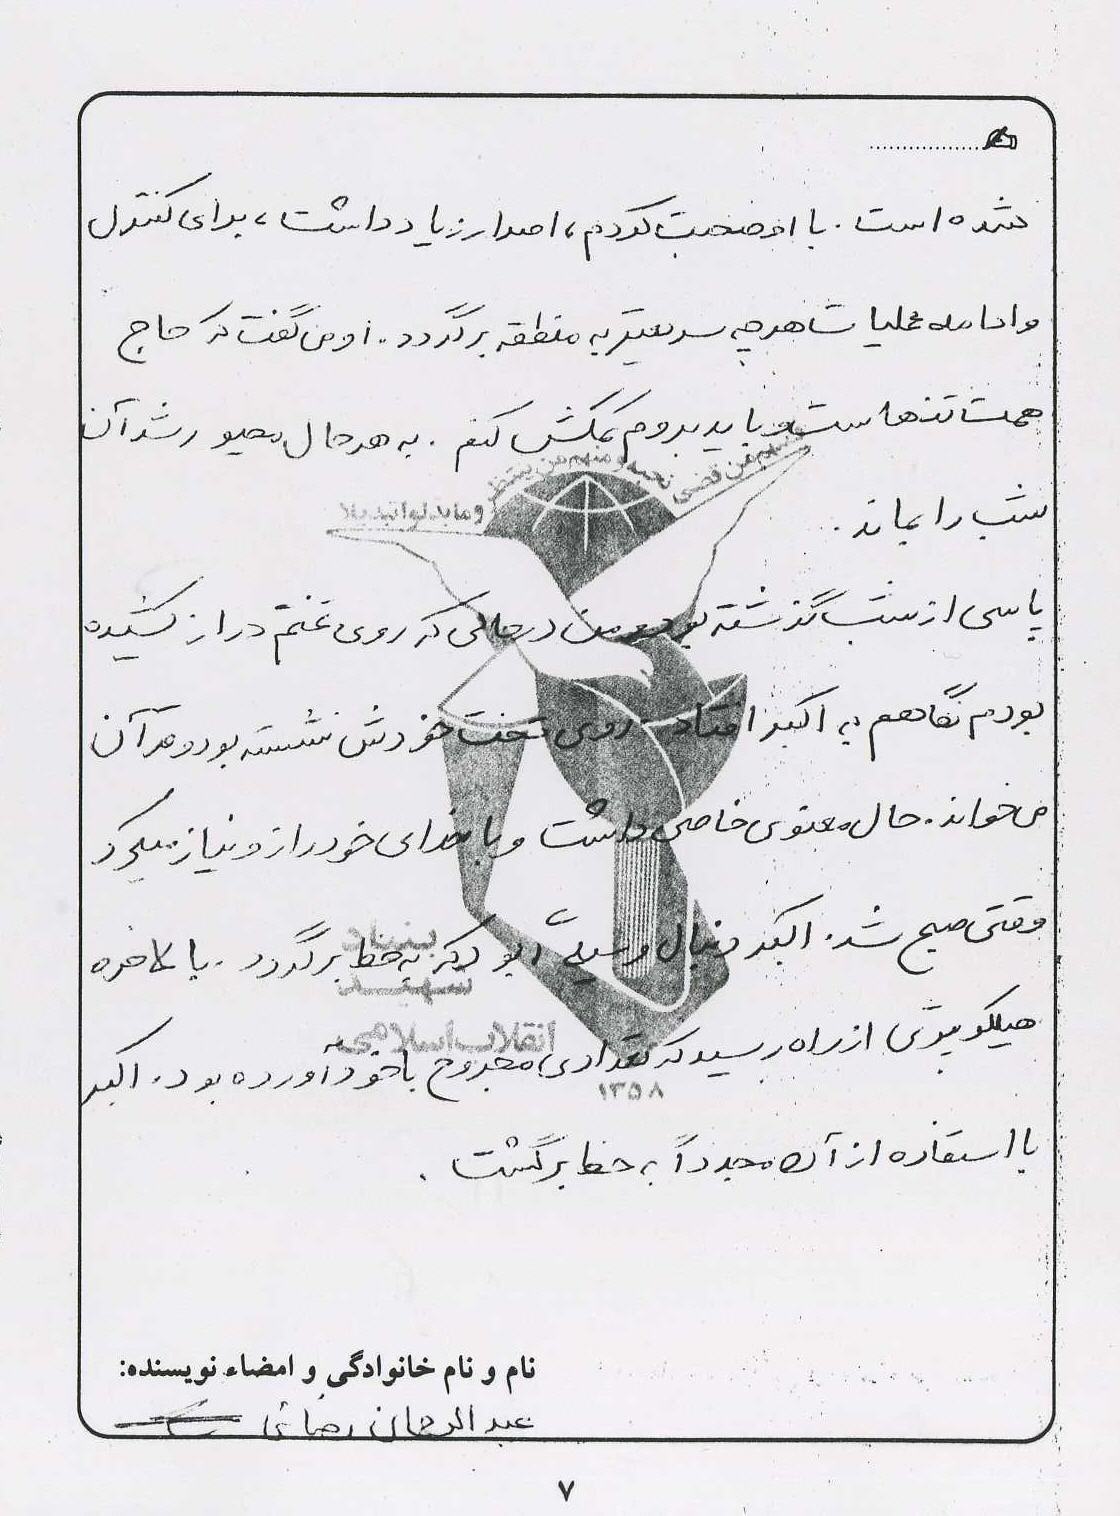 شده است . با او صحبت کردم ، اصرار زیاد داشت ، برای کنترل
و ادامه عملیات هر چه سریعتر به منطقه برگردد . او می گفت که حاج
همت تنهاست و باید بروم کمکش کنم . به هر حال مجبور شد آن
شب را بماند .
پاسی از شب گذشته بود و من در حالی که روی تختم دراز کشیده
بودم نگاهم به اکبر افتاد روی تخت خودش نشسته بود و قرآن
می خواند . حال معنوی خاصی داشت و با خدای خود راز و نیاز میکرد
وقتی صبح شد . اکبر دنبال وسیله ای بود که به خط برگردد . بالاخره
هیلکوپتری از راه رسید که تعدادی مجروح با خود آورده بود . اکبر
با استفاده از آن مجدداً به خط برگشت .
فمنهم من قضی نحبه و منهم من ینتظر و ما بدلوا تبدیلا
بنیاد
شهید
انقلاب اسلامی
۱۳۵۸
نام و نام خانوادگی و امضاء نویسنده:
عبدالرحمان رضائی
۷